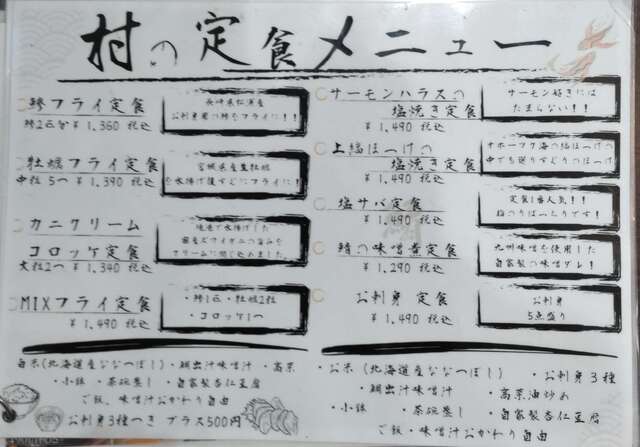 村の定食メニュー
鯵フライ定食
鯵2匹分 ¥1,360 税込
長崎県松浦産
お刺身用の鯵をフライに!!
牡蠣フライ定食
中粒 5つ ¥1,390 税込
宮城県産生牡蠣
を水揚げ後すぐにフライに!
カニクリーム
コロッケ定食
大粒2つ ¥1,340 税込
境港で水揚げした
クリームに閉じ込めました
MIXフライ定食
¥1,490 税込
・鯵1匹・牡蠣2粒
・コロッケ1つ
白米(北海道産ななつぼし)・鯛出汁味噌汁 ・高菜
・小鉢 ・茶碗蒸し ・自家製杏仁豆腐
ご飯、味噌汁おかわり自由
お刺身3種つき プラス500円
サーモンハラスの
塩焼き定食
¥1,490 税込
サーモン好きには
たまらない!!!
上縞ほっけの
塩焼き定食
¥1,490 税込
オホーツク海の縞ほっけの
中でも選りすぐりのほっけ
塩サバ定食
¥1,490 税込
定食1番人気!!
脂のりばっちりです!
鯖の味噌煮定食
¥1,290 税込
九州味噌を使用した
自家製の味噌ダレ!
お刺身 定食
¥1,490 税込
お刺身
5点盛り
・お米(北海道産ななつぼし) ・お刺身3種
・鯛出汁味噌汁 ・高菜油炒め
・小鉢 ・茶碗蒸し ・自家製杏仁豆腐
ご飯・味噌汁おかわり自由